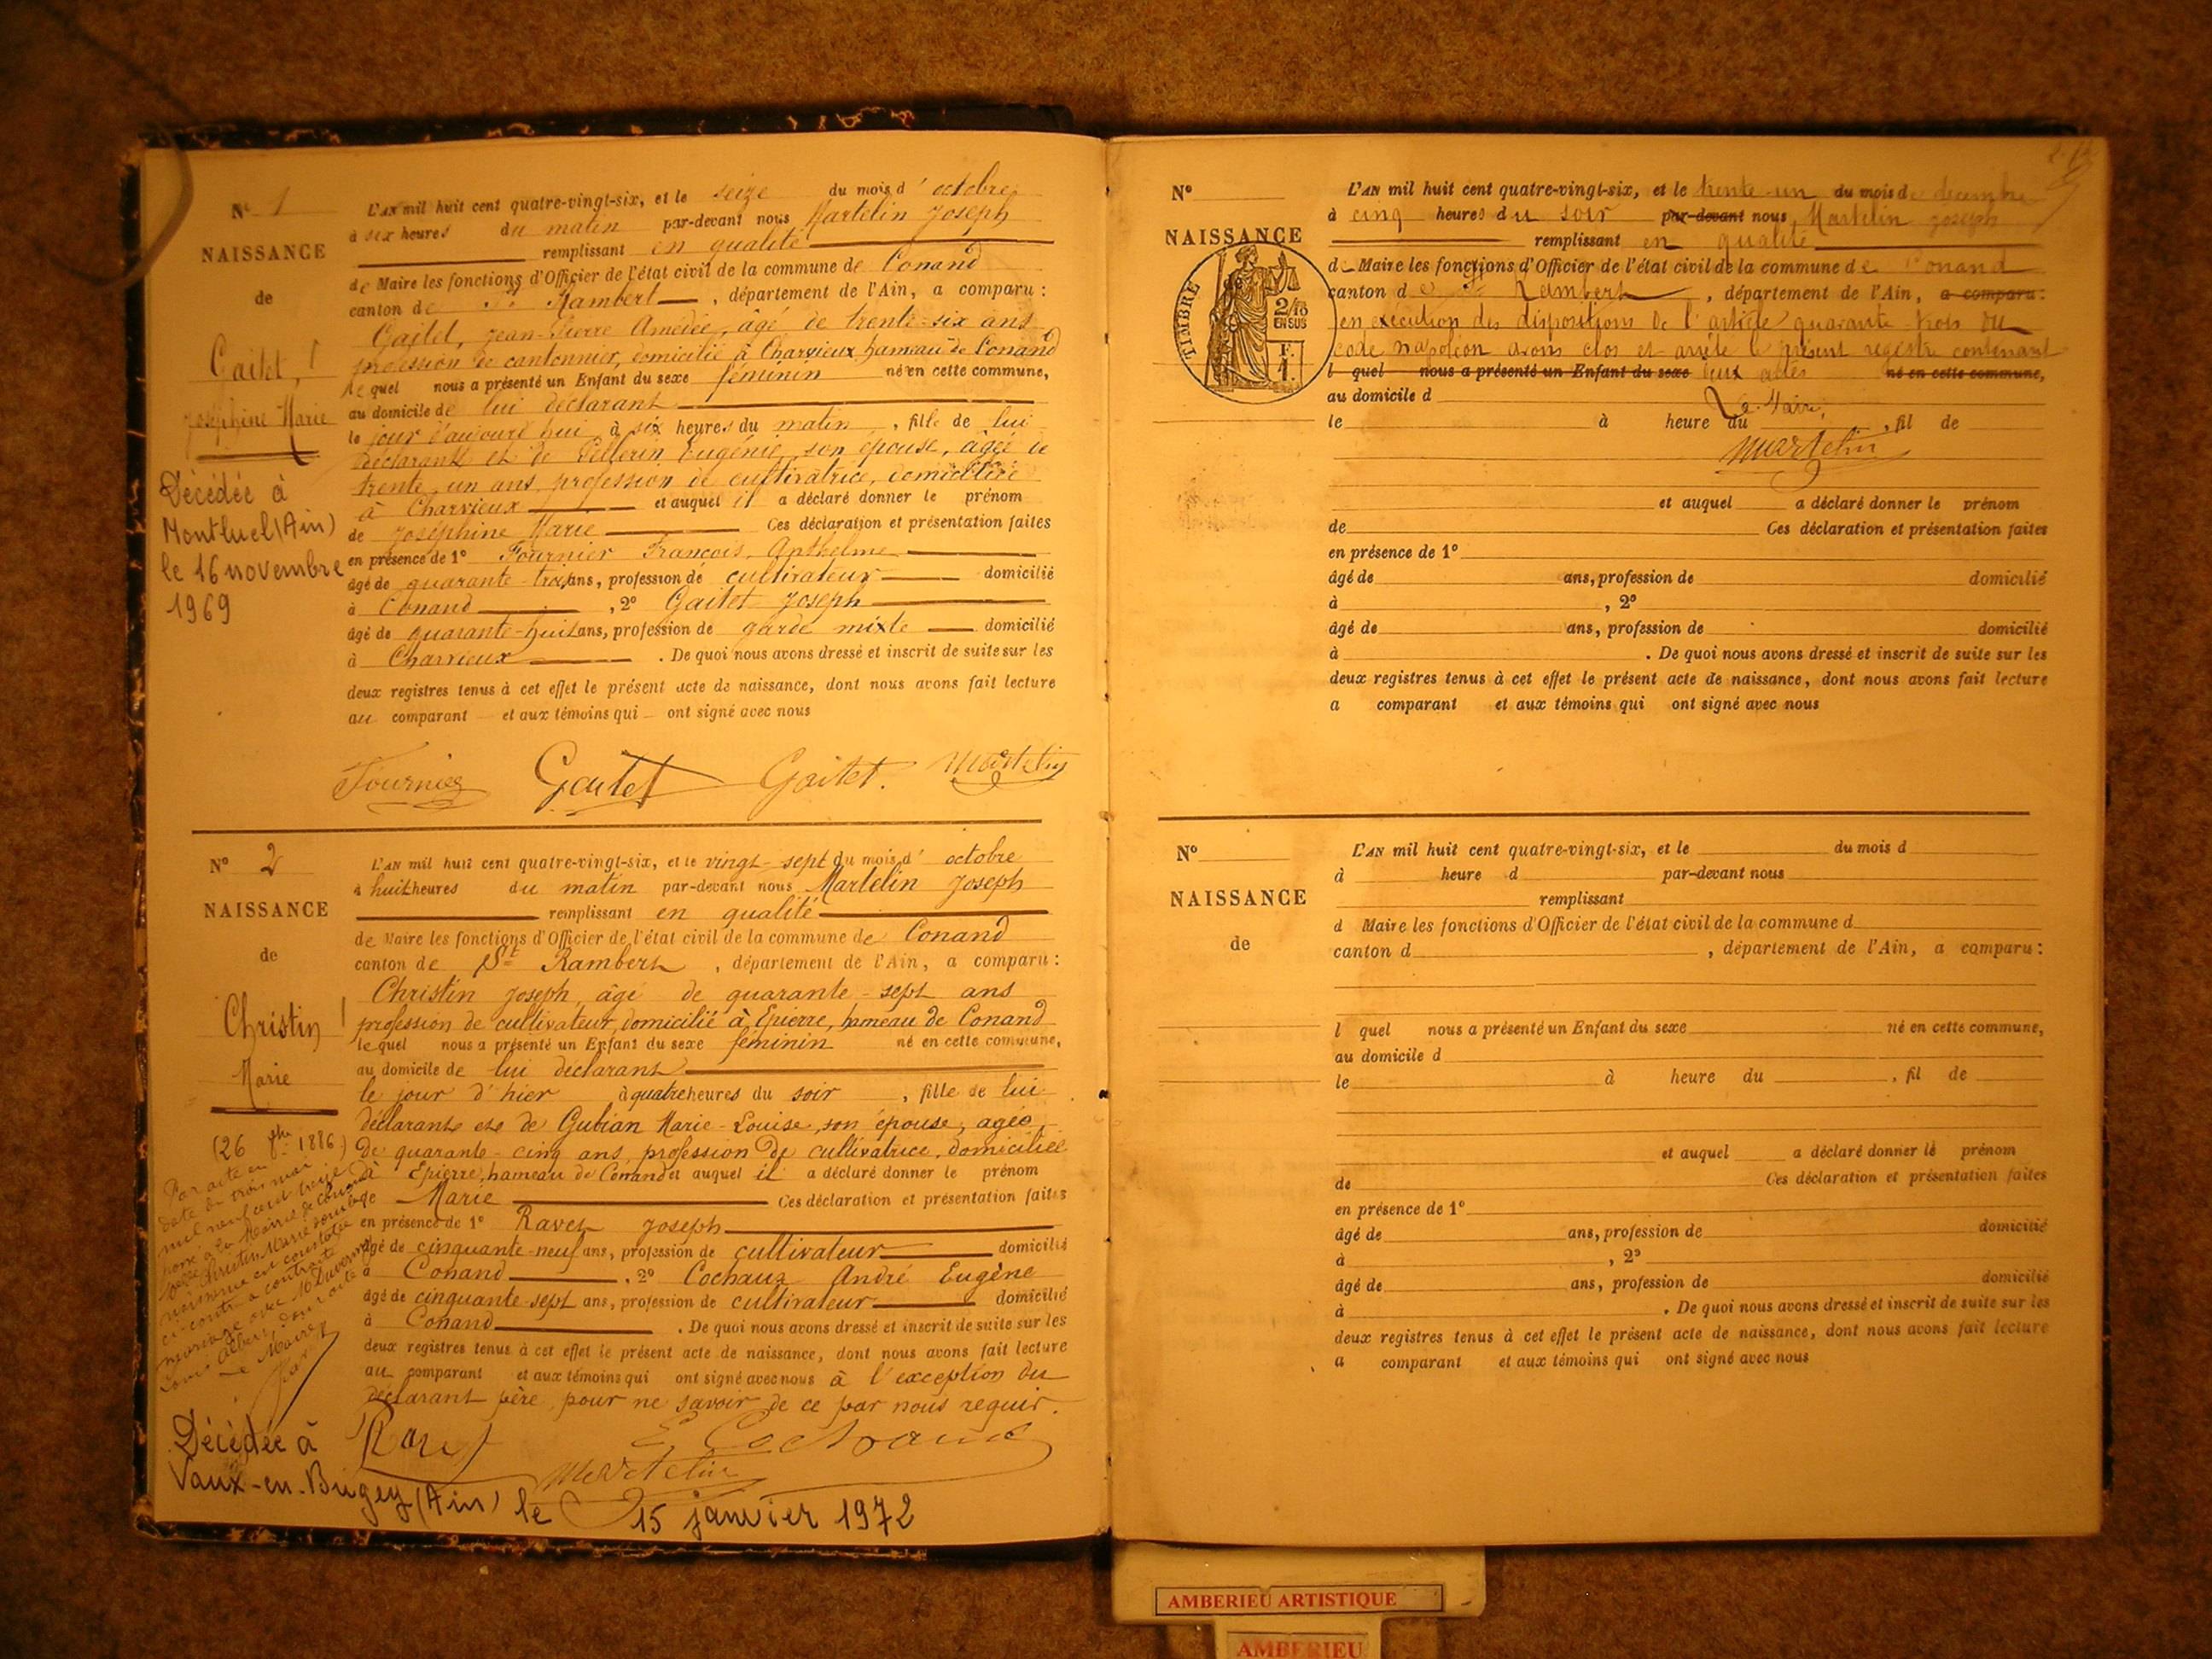 N° 1
NAISSANCE
de
Gaitet,
Joséphine Marie
Décédée à
Montluel (Ain)
le 16 novembre
1969
L'AN mil huit cent quatre-vingt-six, et le seize du mois d'octobre
à six heures du matin par-devant nous Martelin Joseph
remplissant en qualité
de Maire les fonctions d'Officier de l'état civil de la commune de Conand
canton de St Rambert, département de l'Ain, a comparu :
Gaitet, Jean-Pierre Amédée, âgé de trente-six ans
profession de cantonnier, domicilié à Charvieux hameau de Conand
lequel nous a présenté un Enfant du sexe féminin né en cette commune,
au domicile de lui déclarant
le jour d'aujourd'hui à six heures du matin, fille de lui
déclarant et de Pellerin Eugénie, son épouse, âgée de
trente un ans profession de cultivatrice, domiciliée
à Charvieux et auquel il a déclaré donner le prénom
de Joséphine Marie Ces déclaration et présentation faites
en présence de 1° Fournier François Anthelme
âgé de quarante-trois ans, profession de cultivateur domicilié
à Conand, 2° Gaitet Joseph
âgé de quarante-huit ans, profession de garde mixte domicilié
à Charvieux. De quoi nous avons dressé et inscrit de suite sur les
deux registres tenus à cet effet le présent acte de naissance, dont nous avons fait lecture
au comparant et aux témoins qui ont signé avec nous
Fournier Gaitet Gaitet. Martelin
N° 2
NAISSANCE
de
Christin
Marie
(26 8bre 1886)
Par acte en
date du trois mai
mil neuf cent treize
passé à la Mairie de Conand
Christin Marie
naissance est constatée
ci-contre a contracté
mariage avec M. Duvernay
Louis Albert, dont acte
Le Maire
Décédée à
Vaux-en-Bugey (Ain) le 15 janvier 1972
L'AN mil huit cent quatre-vingt-six, et le vingt-sept du mois d'octobre
à huit heures du matin par-devant nous Martelin Joseph
remplissant en qualité
de Maire les fonctions d'Officier de l'état civil de la commune de Conand
canton de St Rambert, département de l'Ain, a comparu :
Christin Joseph, âgé de quarante-sept ans
profession de cultivateur, domicilié à Epierre, hameau de Conand
lequel nous a présenté un Enfant du sexe féminin né en cette commune,
au domicile de lui déclarant
le jour d'hier à quatre heures du soir, fille de lui
déclarant et de Gubian Marie-Louise, son épouse, agée
de quarante-cinq ans, profession de cultivatrice, domiciliée
à Epierre, hameau de Conand et auquel il a déclaré donner le prénom
de Marie Ces déclaration et présentation faites
en présence de 1° Ravet Joseph
âgé de cinquante-neuf ans, profession de cultivateur domicilié
à Conand, 2° Cochaux André Eugène
âgé de cinquante-sept ans, profession de cultivateur domicilié
à Conand. De quoi nous avons dressé et inscrit de suite sur les
deux registres tenus à cet effet le présent acte de naissance, dont nous avons fait lecture
au comparant et aux témoins qui ont signé avec nous à l'exception du
déclarant père, pour ne savoir de ce par nous requir.
Ravet
Martelin
N°
NAISSANCE
TIMBRE
2/10
EN SUS
F.
1.
L'AN mil huit cent quatre-vingt-six, et le trente-un du mois de décembre
à cinq heures du soir par-devant nous, Martelin Joseph
remplissant en qualité
de Maire les fonctions d'Officier de l'état civil de la commune de Conand
canton de St Rambert, département de l'Ain, a comparu :
en exécution des dispositions de l'article quarante-trois du
code napoléon avons clos et arrêté le présent registre contenant
l quel nous a présenté un Enfant du sexe deux actes né en cette commune,
au domicile d
Le Maire,
le à heure du , fil de
Martelin
et auquel a déclaré donner le prénom
de Ces déclaration et présentation faites
en présence de 1°
âgé de ans, profession de domicilié
à , 2°
âgé de ans, profession de domicilié
à . De quoi nous avons dressé et inscrit de suite sur les
deux registres tenus à cet effet le présent acte de naissance, dont nous avons fait lecture
a comparant et aux témoins qui ont signé avec nous
N°
NAISSANCE
de
L'AN mil huit cent quatre-vingt-six, et le du mois d
à heure d par-devant nous
remplissant
d Maire les fonctions d'Officier de l'état civil de la commune d
canton d , département de l'Ain, a comparu :
l quel nous a présenté un Enfant du sexe né en cette commune,
au domicile d
le à heure du , fil de
et auquel a déclaré donner le prénom
de Ces déclaration et présentation faites
en présence de 1°
âgé de ans, profession de domicilié
à , 2°
âgé de ans, profession de domicilié
à . De quoi nous avons dressé et inscrit de suite sur les
deux registres tenus à cet effet le présent acte de naissance, dont nous avons fait lecture
a comparant et aux témoins qui ont signé avec nous
AMBERIEU ARTISTIQUE
AMBERIEU